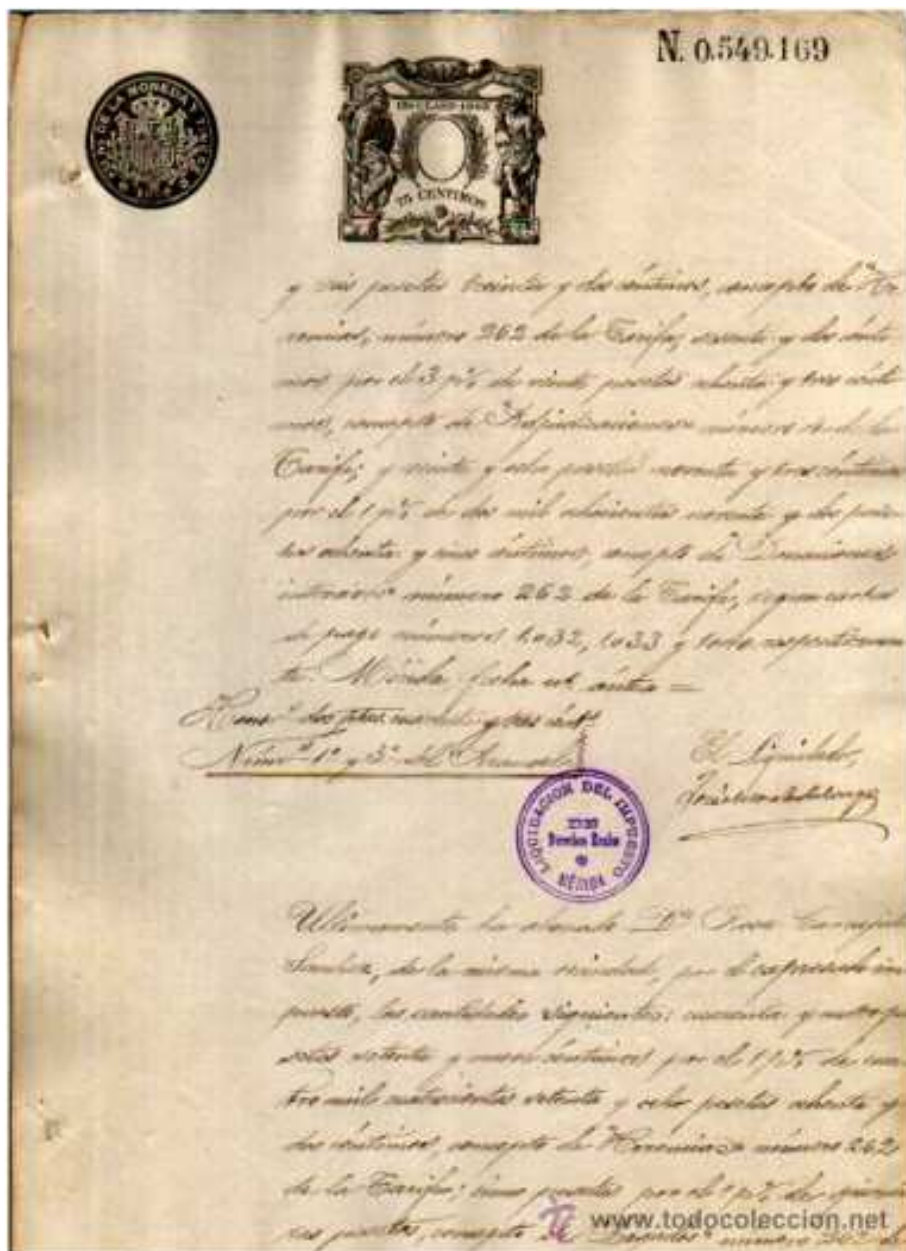 N. 0.549.169
75 CENTIMOS
y seis pesetas treinta y dos céntimos, concepto de He-
rencias, número 262 de la Tarifa; sesenta y dos cénti
mos por el 3 p% de veinte pesetas ochenta y tres cénti
mos, concepto de Adjudicaciones número de la
Tarifa; y veinte y ocho pesetas noventa y tres céntimos
por el 1 p% de dos mil ochocientas noventa y dos pese-
tas ochenta y cinco céntimos, concepto de
número 262 de la Tarifa, según cartas
de pago números 1.032, 1.033 y respectivamen
te. Mérida fecha ut
Hons. dos ptas. y tres cént.
Núms. 1º y 3º del Arancel
El Liquidador,
LIQUIDACION DEL IMPUESTO
Derechos Reales
MÉRIDA
Ultimamente ha abonado Dª Rosa
Sanchez, de la misma vecindad, por el expresado im
puesto, las cantidades siguientes: cuarenta y cuatro pe
setas setenta y nueve céntimos por el 1 p% de cua
tro mil cuatrocientas setenta y ocho pesetas ochenta y
dos céntimos, concepto de Herencias número 262
de la Tarifa; cinco pesetas por el 1 p% de quinien
tas pesetas, concepto de número 262 de
www.todocoleccion.net